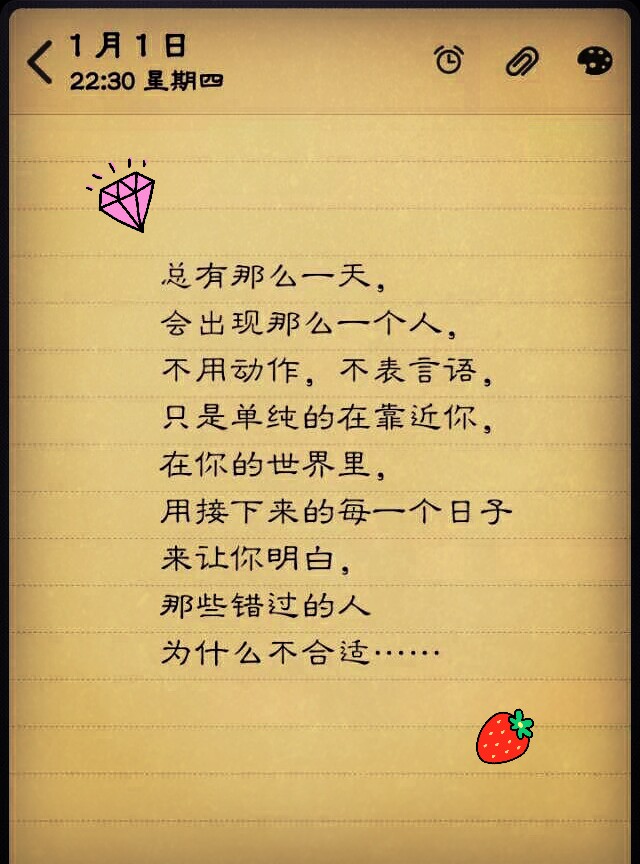 1月1日
22:30 星期四
总有那么一天，
会出现那么一个人，
不用动作，不表言语，
只是单纯的在靠近你，
在你的世界里，
用接下来的每一个日子
来让你明白，
那些错过的人
为什么不合适……